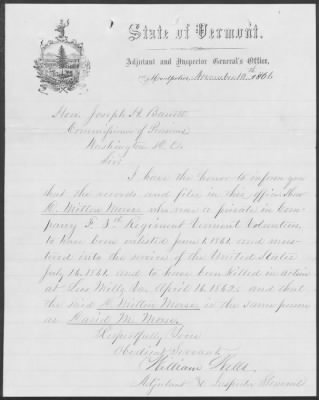 State of Vermont.
Adjutant and Inspector General's Office,
Montpelier, November 12th 1866
Hon. Joseph H. Barrett
Commissioner of Pensions
Washington D.C.
Sir
I have the honor to inform you
that the records and files in this office show
D. Milton Morse who was a private in Com-
pany F. 3rd Regiment Vermont Volunteers,
to have been enlisted June 1, 1861. and mus-
tered into the service of the United States
July 16, 1861. and to have been killed in action
at Lees Mills Va. April 16, 1862. and that
the said D. Milton Morse is the same person
as David M. Morse.
Respectfully Your
Obedient Servant
William Wells
Adjutant & Inspector General